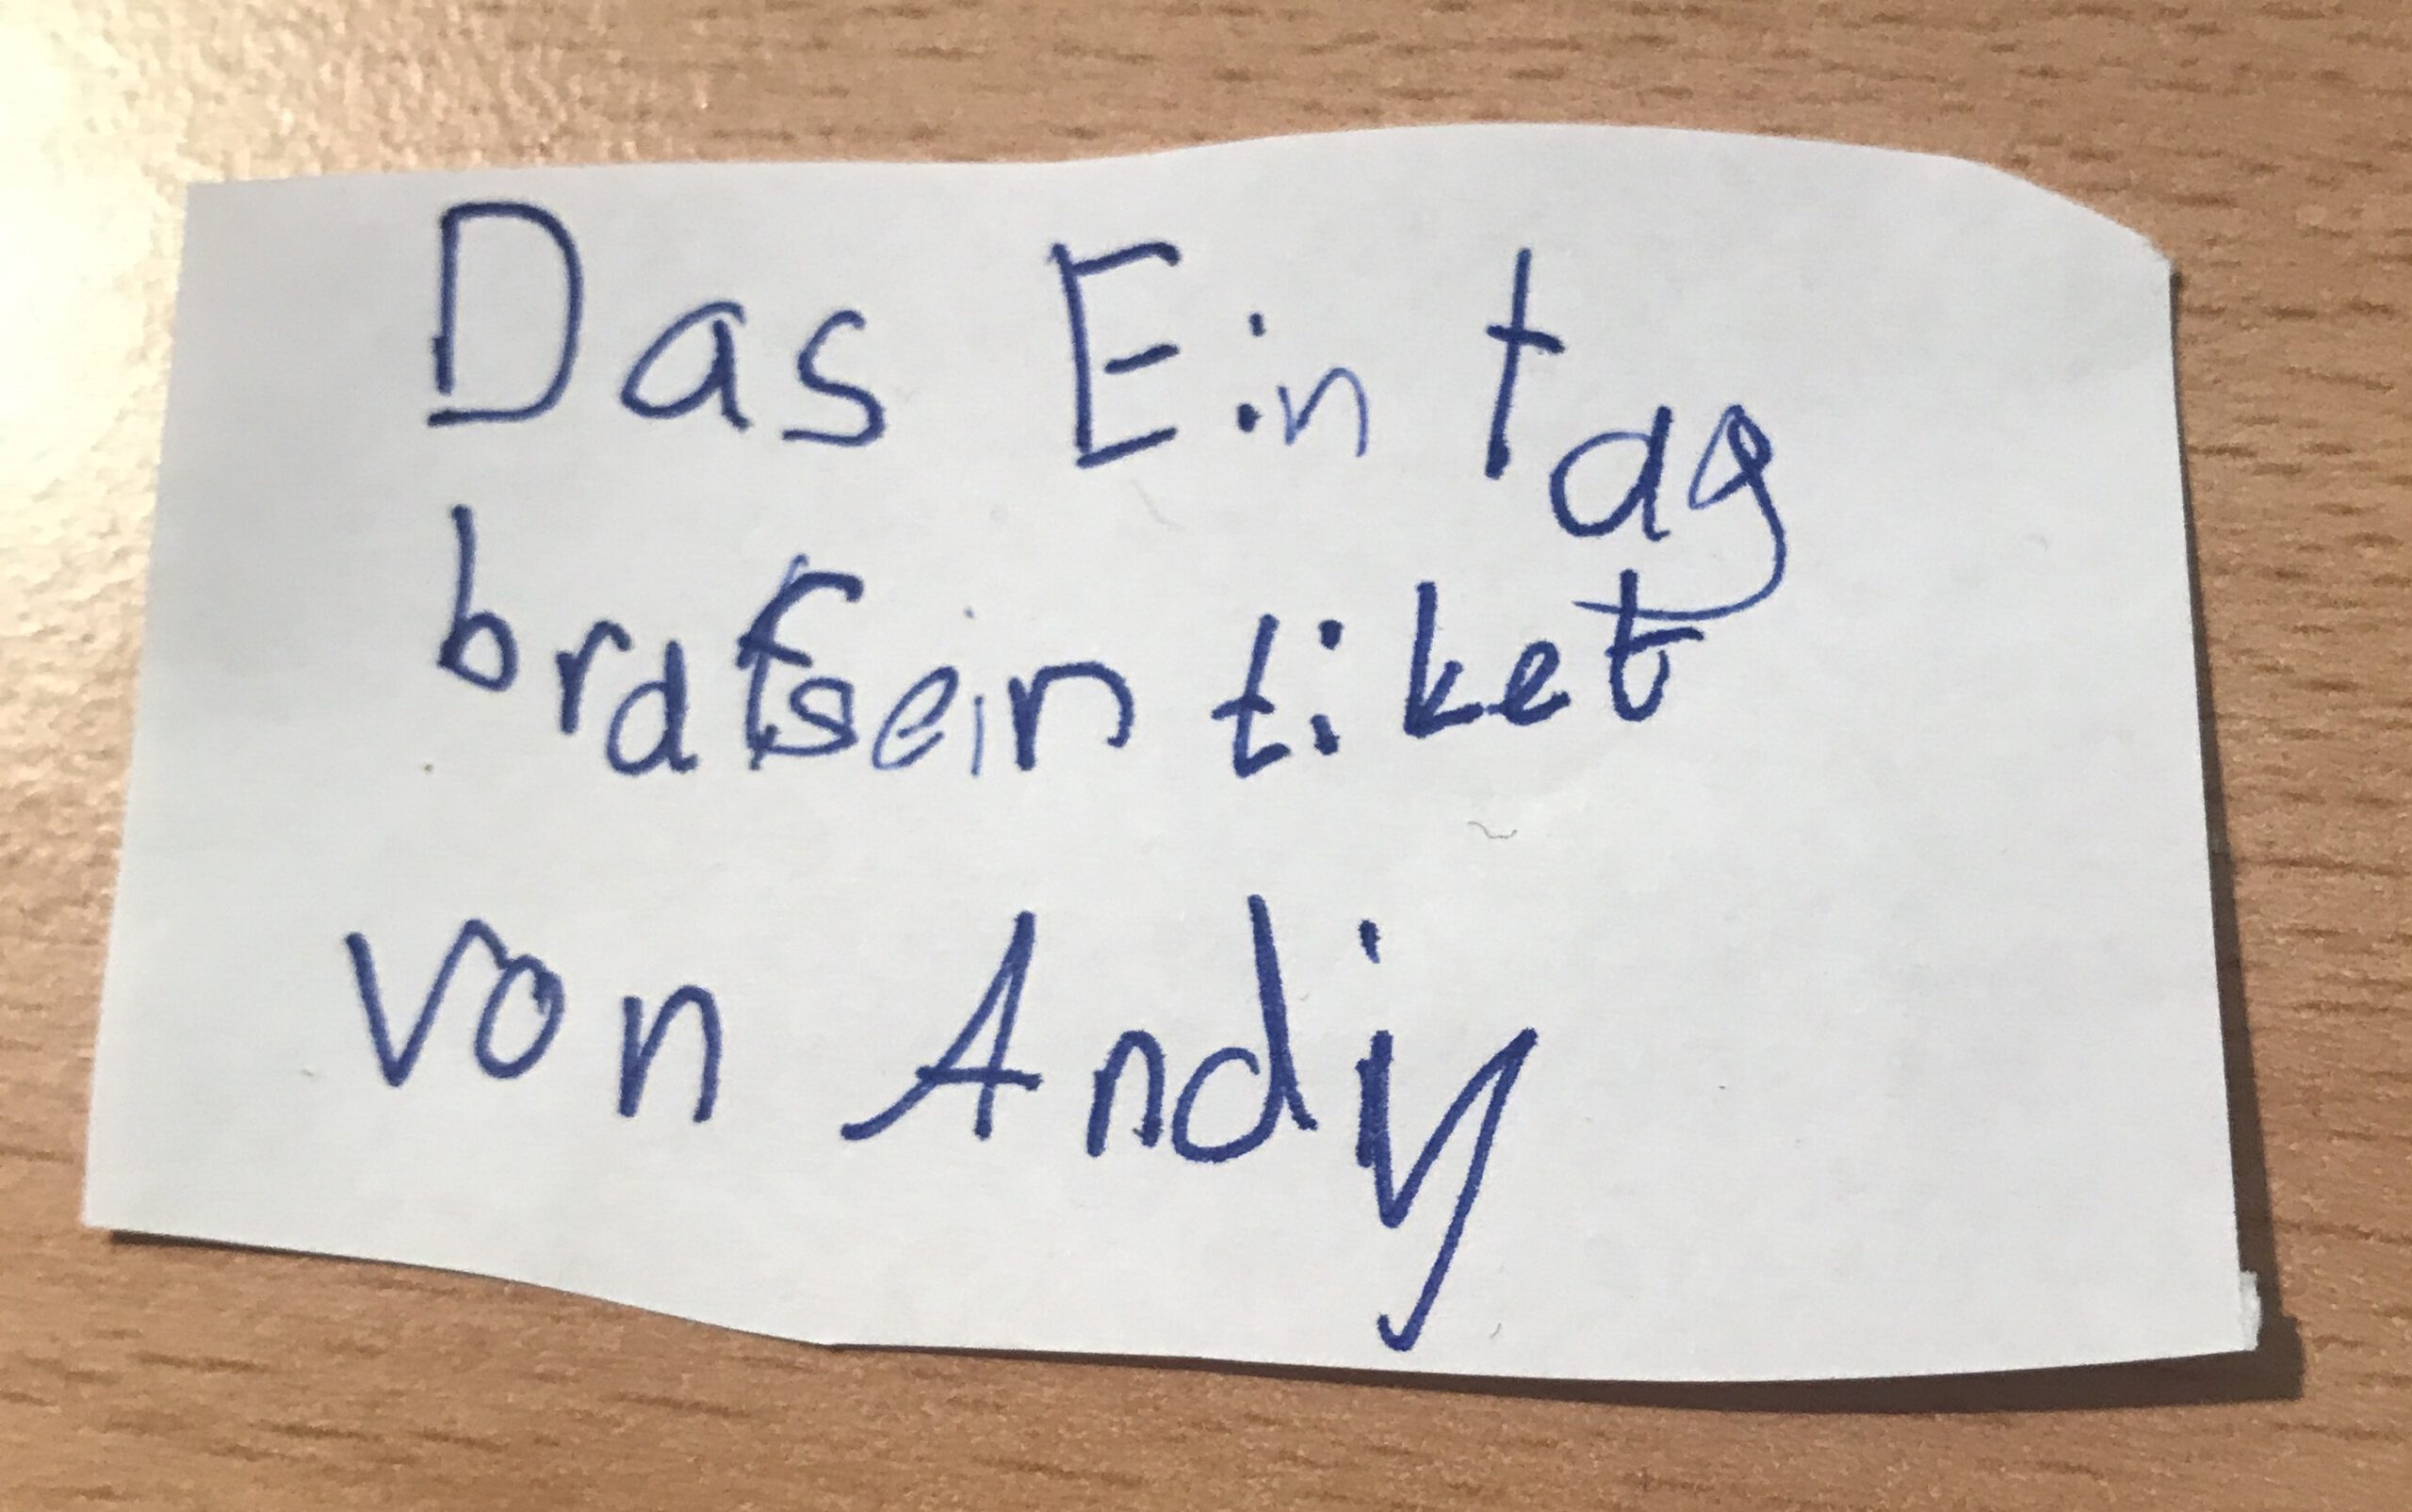 Das Ein tag
brafsein tiket
von Andiy